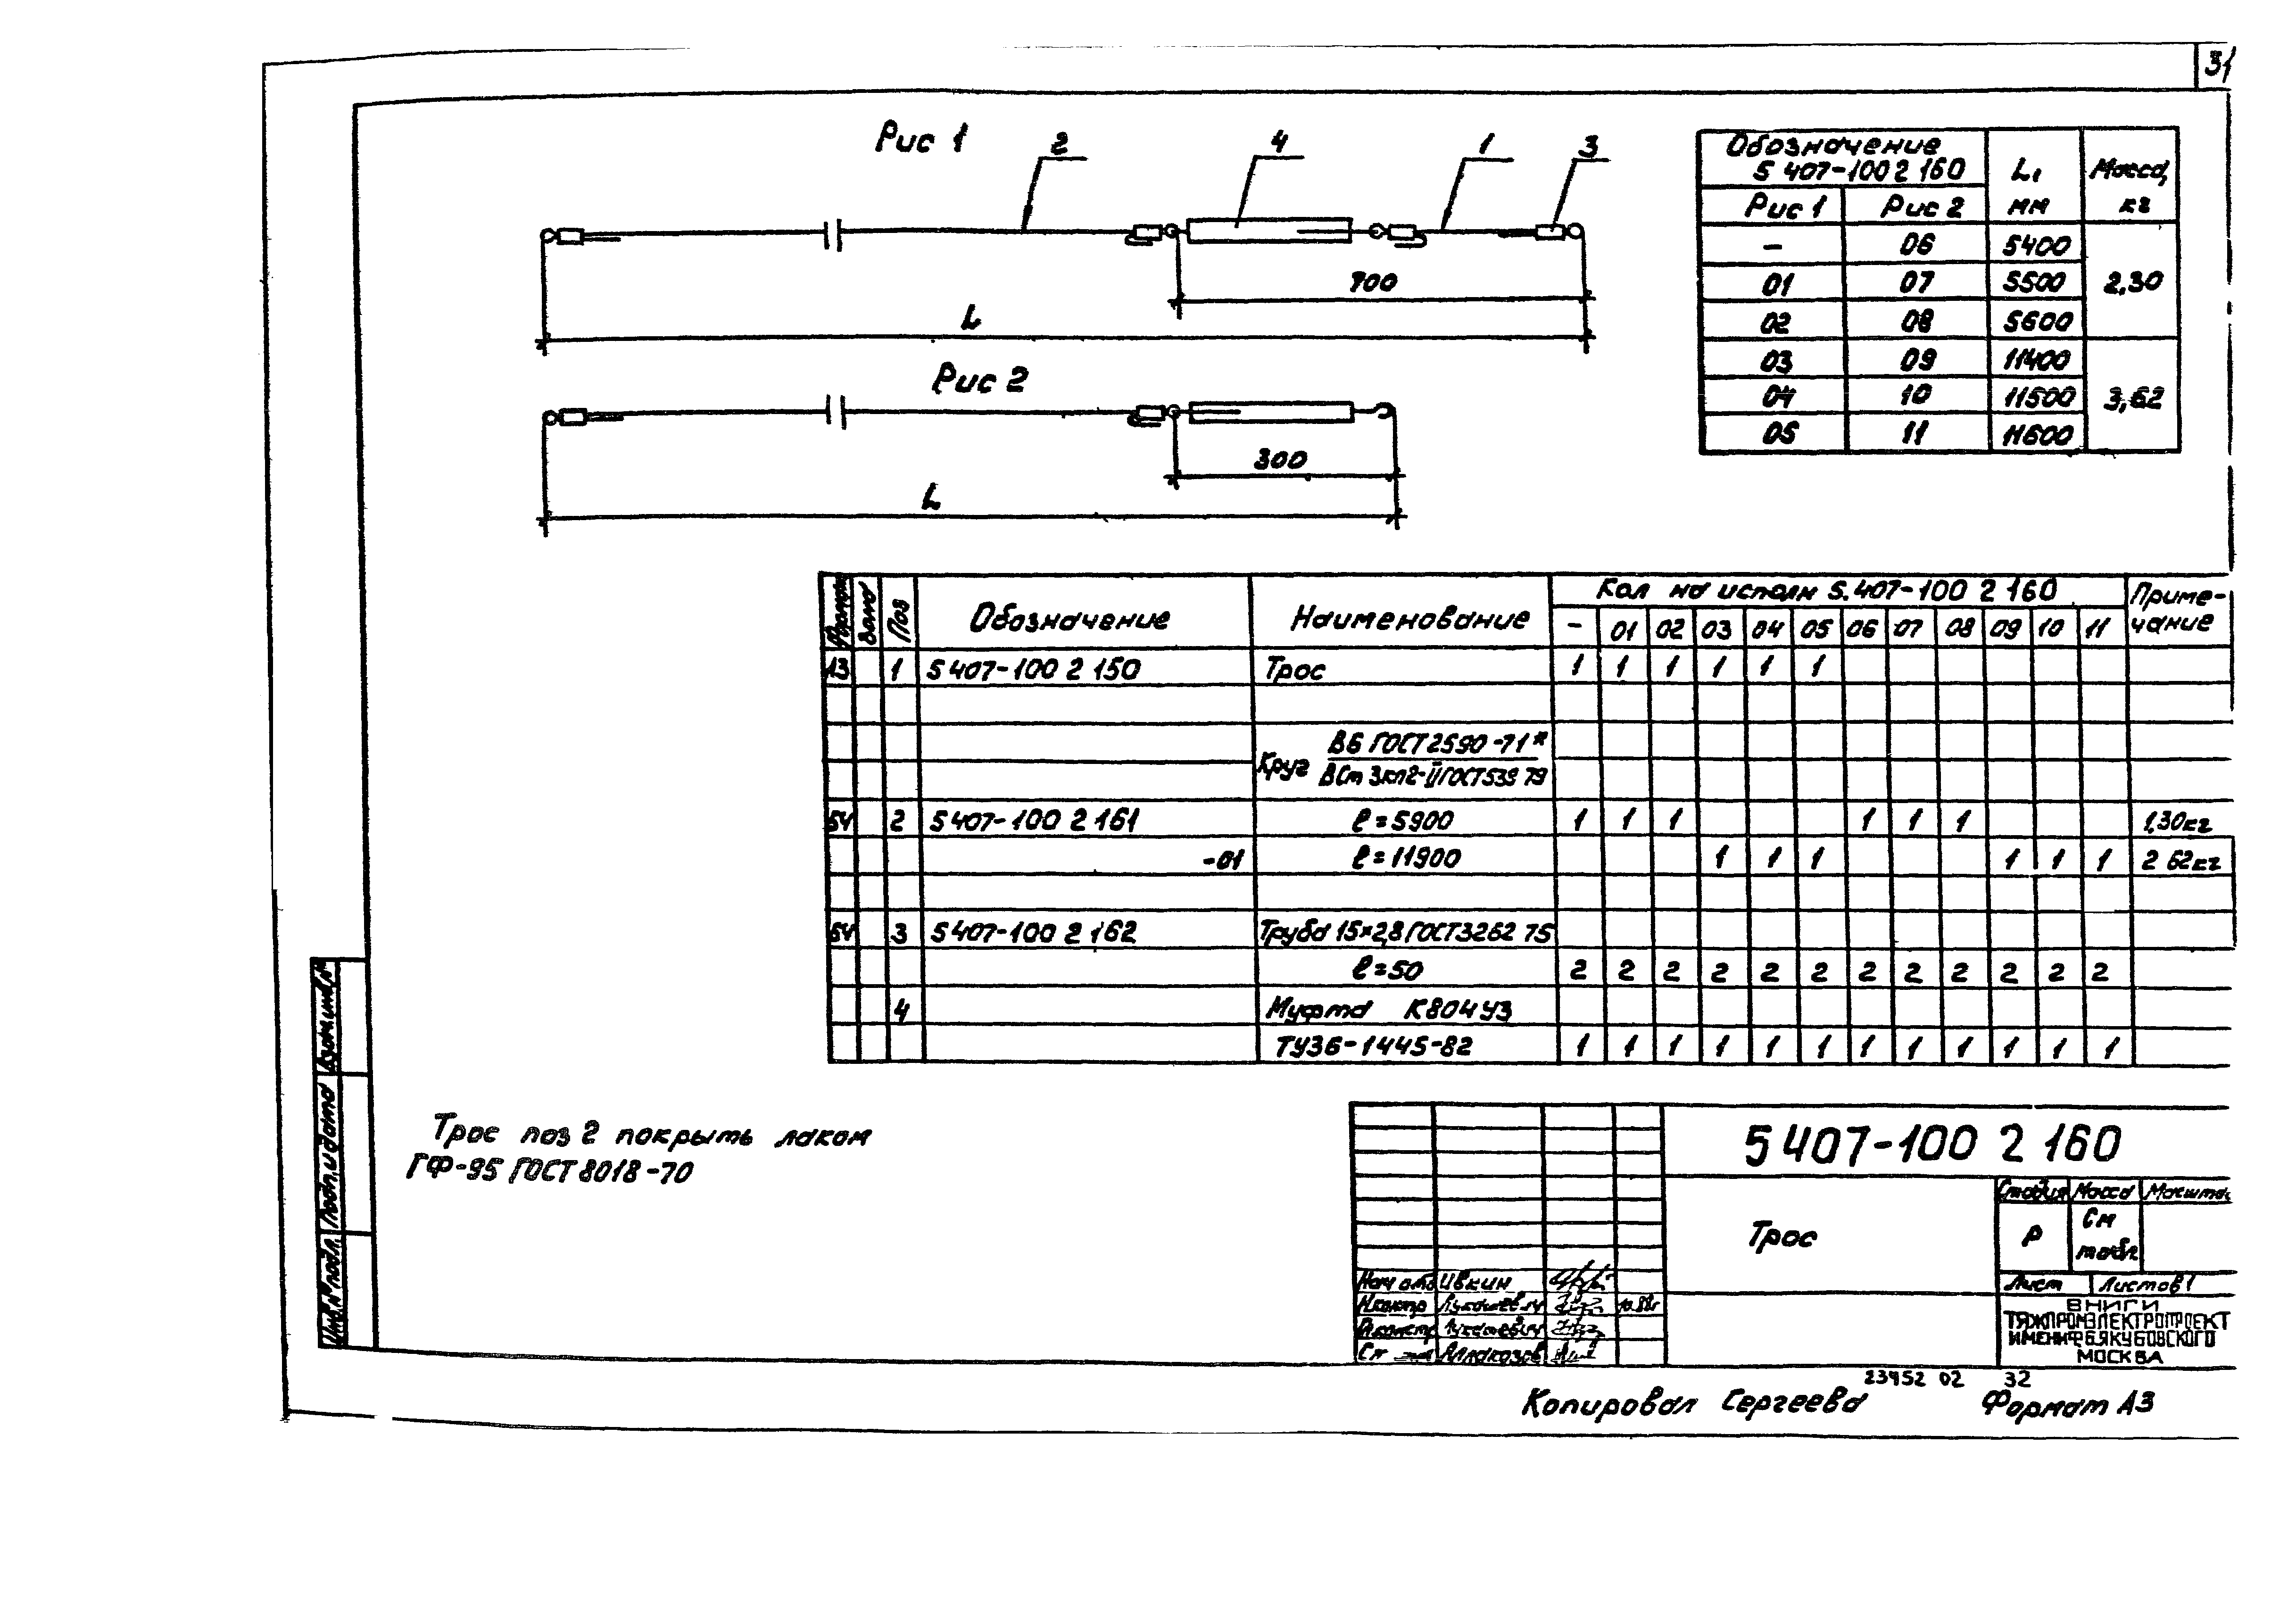 31
Рис 1
2
4
1
3
700
L
Рис 2
300
L
Обозначение 5 407-100 2 160 | L, мм | Масса, кг
Рис 1 | Рис 2
- | 06 | 5400
01 | 07 | 5500 | 2,30
02 | 08 | 5600
03 | 09 | 11400
04 | 10 | 11500 | 3,62
05 | 11 | 11600
Формат | Зона | Поз | Обозначение | Наименование | Кол на исполн 5.407-100 2 160 | Примечание
- | 01 | 02 | 03 | 04 | 05 | 06 | 07 | 08 | 09 | 10 | 11
А3 | 1 | 5 407-100 2 150 | Трос | 1 | 1 | 1 | 1 | 1 | 1
Круг В6 ГОСТ 2590-71*
ВСт 3кп2-II ГОСТ 535 79
БЧ | 2 | 5 407-100 2 161 | ℓ=5900 | 1 | 1 | 1 | 1 | 1 | 1 | 1,30кг
-01 | ℓ=11900 | 1 | 1 | 1 | 1 | 1 | 1 | 2 62кг
БЧ | 3 | 5 407-100 2 162 | Труба 15×2,8 ГОСТ 3262 75
ℓ=50 | 2 | 2 | 2 | 2 | 2 | 2 | 2 | 2 | 2 | 2 | 2 | 2
4 | Муфта К804У3
ТУ36-1445-82 | 1 | 1 | 1 | 1 | 1 | 1 | 1 | 1 | 1 | 1 | 1 | 1
Трос поз 2 покрыть лаком
ГФ-95 ГОСТ 8018-70
Взам инв №
Подп. и дата
Инв. № подл.
5 407-100 2 160
Трос
Стадия | Масса | Масштаб
Р | См табл
Лист | Листов 1
Нач отд | Ивкин
Н.контр | Лукашевич | 10.88г
Гл констр | Лукашевич
Ст | Аллаказов
ВНИПИ
ТЯЖПРОМЭЛЕКТРОПРОЕКТ
ИМЕНИ Ф Б ЯКУБОВСКОГО
МОСКВА
23952 02 32
Копировал Сергеева
Формат А3